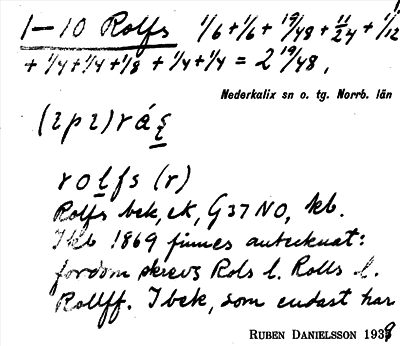 1—10 Rolfs 1/6+1/6+ 19/48 + 11/24 + 1/12
+ 1/4+1/4+1/8 + 1/4+1/4 = 2 19/48,
Nederkalix sn o. tg. Norrb. län
rolfs (r)
Rolfs bek, ek, G37NO, kb.
I kb 1869 finnes antecknat:
fordom skrevs Rols l. Rolls l.
Rollff. I bek, som endast har
RUBEN DANIELSSON 1939